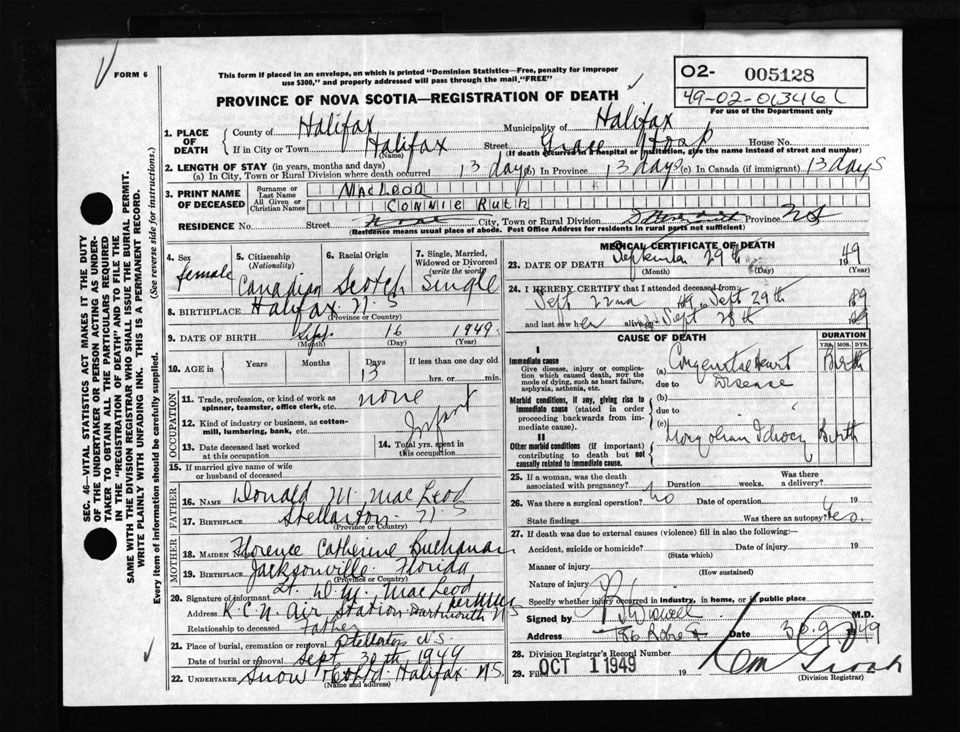 FORM 6
This form if placed in an envelope, on which is printed "Dominion Statistics—Free, penalty for improper
use $300," and properly addressed will pass through the mail, "FREE"
O2- 005128
49-02-013461
For use of the Department only
PROVINCE OF NOVA SCOTIA—REGISTRATION OF DEATH
1. PLACE OF DEATH
County of Halifax Municipality of Halifax
If in City or Town Halifax Street Grace Hosp House No.
(Name) (If death occurred in a hospital or institution, give the name instead of street and number)
2. LENGTH OF STAY (in years, months and days)
(a) In City, Town or Rural Division where death occurred 13 days (b) In Province 13 days (c) In Canada (if immigrant) 13 days
3. PRINT NAME OF DECEASED
Surname or Last Name MacLeod
All Given or Christian Names Connie Ruth
RESIDENCE No. Street City, Town or Rural Division Province NS
(Residence means usual place of abode. Post Office Address for residents in rural parts not sufficient)
4. Sex female
5. Citizenship (Nationality) Canadian
6. Racial Origin Scotch
7. Single, Married, Widowed or Divorced (write the word) Single
8. BIRTHPLACE Halifax N.S
(Province or Country)
9. DATE OF BIRTH Sept. 16 1949
(Month) (Day) (Year)
10. AGE in Years Months Days 13 If less than one day old
hrs. or min.
OCCUPATION
11. Trade, profession, or kind of work as spinner, teamster, office clerk, etc. none
12. Kind of industry or business, as cotton-mill, lumbering, bank, etc. Infant
13. Date deceased last worked at this occupation
14. Total yrs. spent in this occupation
15. If married give name of wife or husband of deceased
FATHER
16. NAME Donald M. MacLeod
17. BIRTHPLACE Stellarton N.S
(Province or Country)
MOTHER
18. MAIDEN Florence Catherine Buchanan
19. BIRTHPLACE Jacksonville Florida
(Province or Country)
20. Signature of informant Lt. D.M. MacLeod
Address R.C.N Air Station Dartmouth NS
Relationship to deceased Father
21. Place of burial, cremation or removal Stellarton N.S.
Date of burial or removal Sept 30th 1949
22. UNDERTAKER Snow Halifax NS
(Name and address)
MEDICAL CERTIFICATE OF DEATH
23. DATE OF DEATH September 29th 1949
(Month) (Day) (Year)
24. I HEREBY CERTIFY that I attended deceased from
Sept 22nd 49 to Sept 29th 49
and last saw her alive on Sept 28th 49
CAUSE OF DEATH
DURATION
YRS. MOS. DYS.
I
Immediate cause
Give disease, injury or complication which caused death, NOT the mode of dying, such as heart failure, asphyxia, asthenia, etc.
(a) Congenital Heart Birth
due to Disease
Morbid conditions, if any, giving rise to immediate cause (stated in order proceeding backwards from immediate cause).
(b)
due to
(c)
II
Other morbid conditions (if important) contributing to death but not causally related to immediate cause.
Mongolian Idiocy Birth
25. If a woman, was the death associated with pregnancy? Duration weeks. Was there a delivery?
26. Was there a surgical operation? no Date of operation 19
State findings Was there an autopsy? Yes.
27. If death was due to external causes (violence) fill in also the following:—
Accident, suicide or homicide? Date of injury 19
(State which)
Manner of injury
(How sustained)
Nature of injury
Specify whether injury occurred in industry, in home, or in public place
Signed by M.D.
Address Date 30 9 1949
28. Division Registrar's Record Number
29. Filed OCT 1 1949 19
(Division Registrar)
SEC. 46—VITAL STATISTICS ACT MAKES IT THE DUTY
OF THE UNDERTAKER OR PERSON ACTING AS UNDER-
TAKER TO OBTAIN ALL THE PARTICULARS REQUIRED
IN THE "REGISTRATION OF DEATH" AND TO FILE THE
SAME WITH THE DIVISION REGISTRAR WHO SHALL ISSUE THE BURIAL PERMIT.
WRITE PLAINLY WITH UNFADING INK. THIS IS A PERMANENT RECORD.
Every item of information should be carefully supplied. (See reverse side for instructions.)